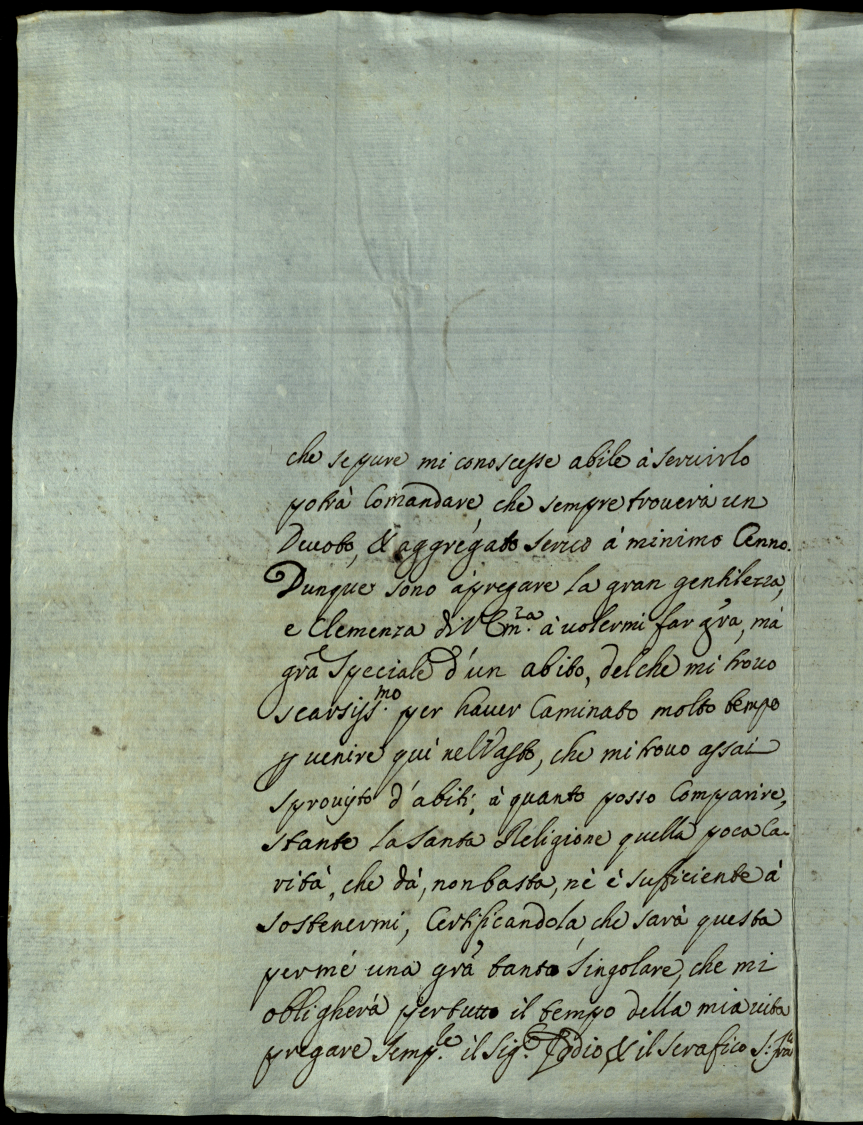 che se pure mi conoscesse abile à seruirlo
potrà Comandare che sempre trouerà un
Deuoto, & aggregato seruo à minimo Cenno.
Dunque sono à pregare la gran gentilezza,
e Clemenza di V. Em.za à uolermi far gra, mà
gra Speciale d'un abito, del che mi trouo
scarsiss.mo per hauer Caminato molto tempo
p uenire quì nel Vasto, che mi trouo assai
sprouisto d'abiti, à quanto posso Comparire,
stante la Santa Religione quella poca Ca-
rità, che dà, non basta, nè è suficiente à
sostenermi, Certificandola che sarà questa
per mè una gra tanto singolare, che mi
obligherà per tutto il tempo della mia uita
pregare Semp.e il Sig.e Iddio, & il Serafico S: